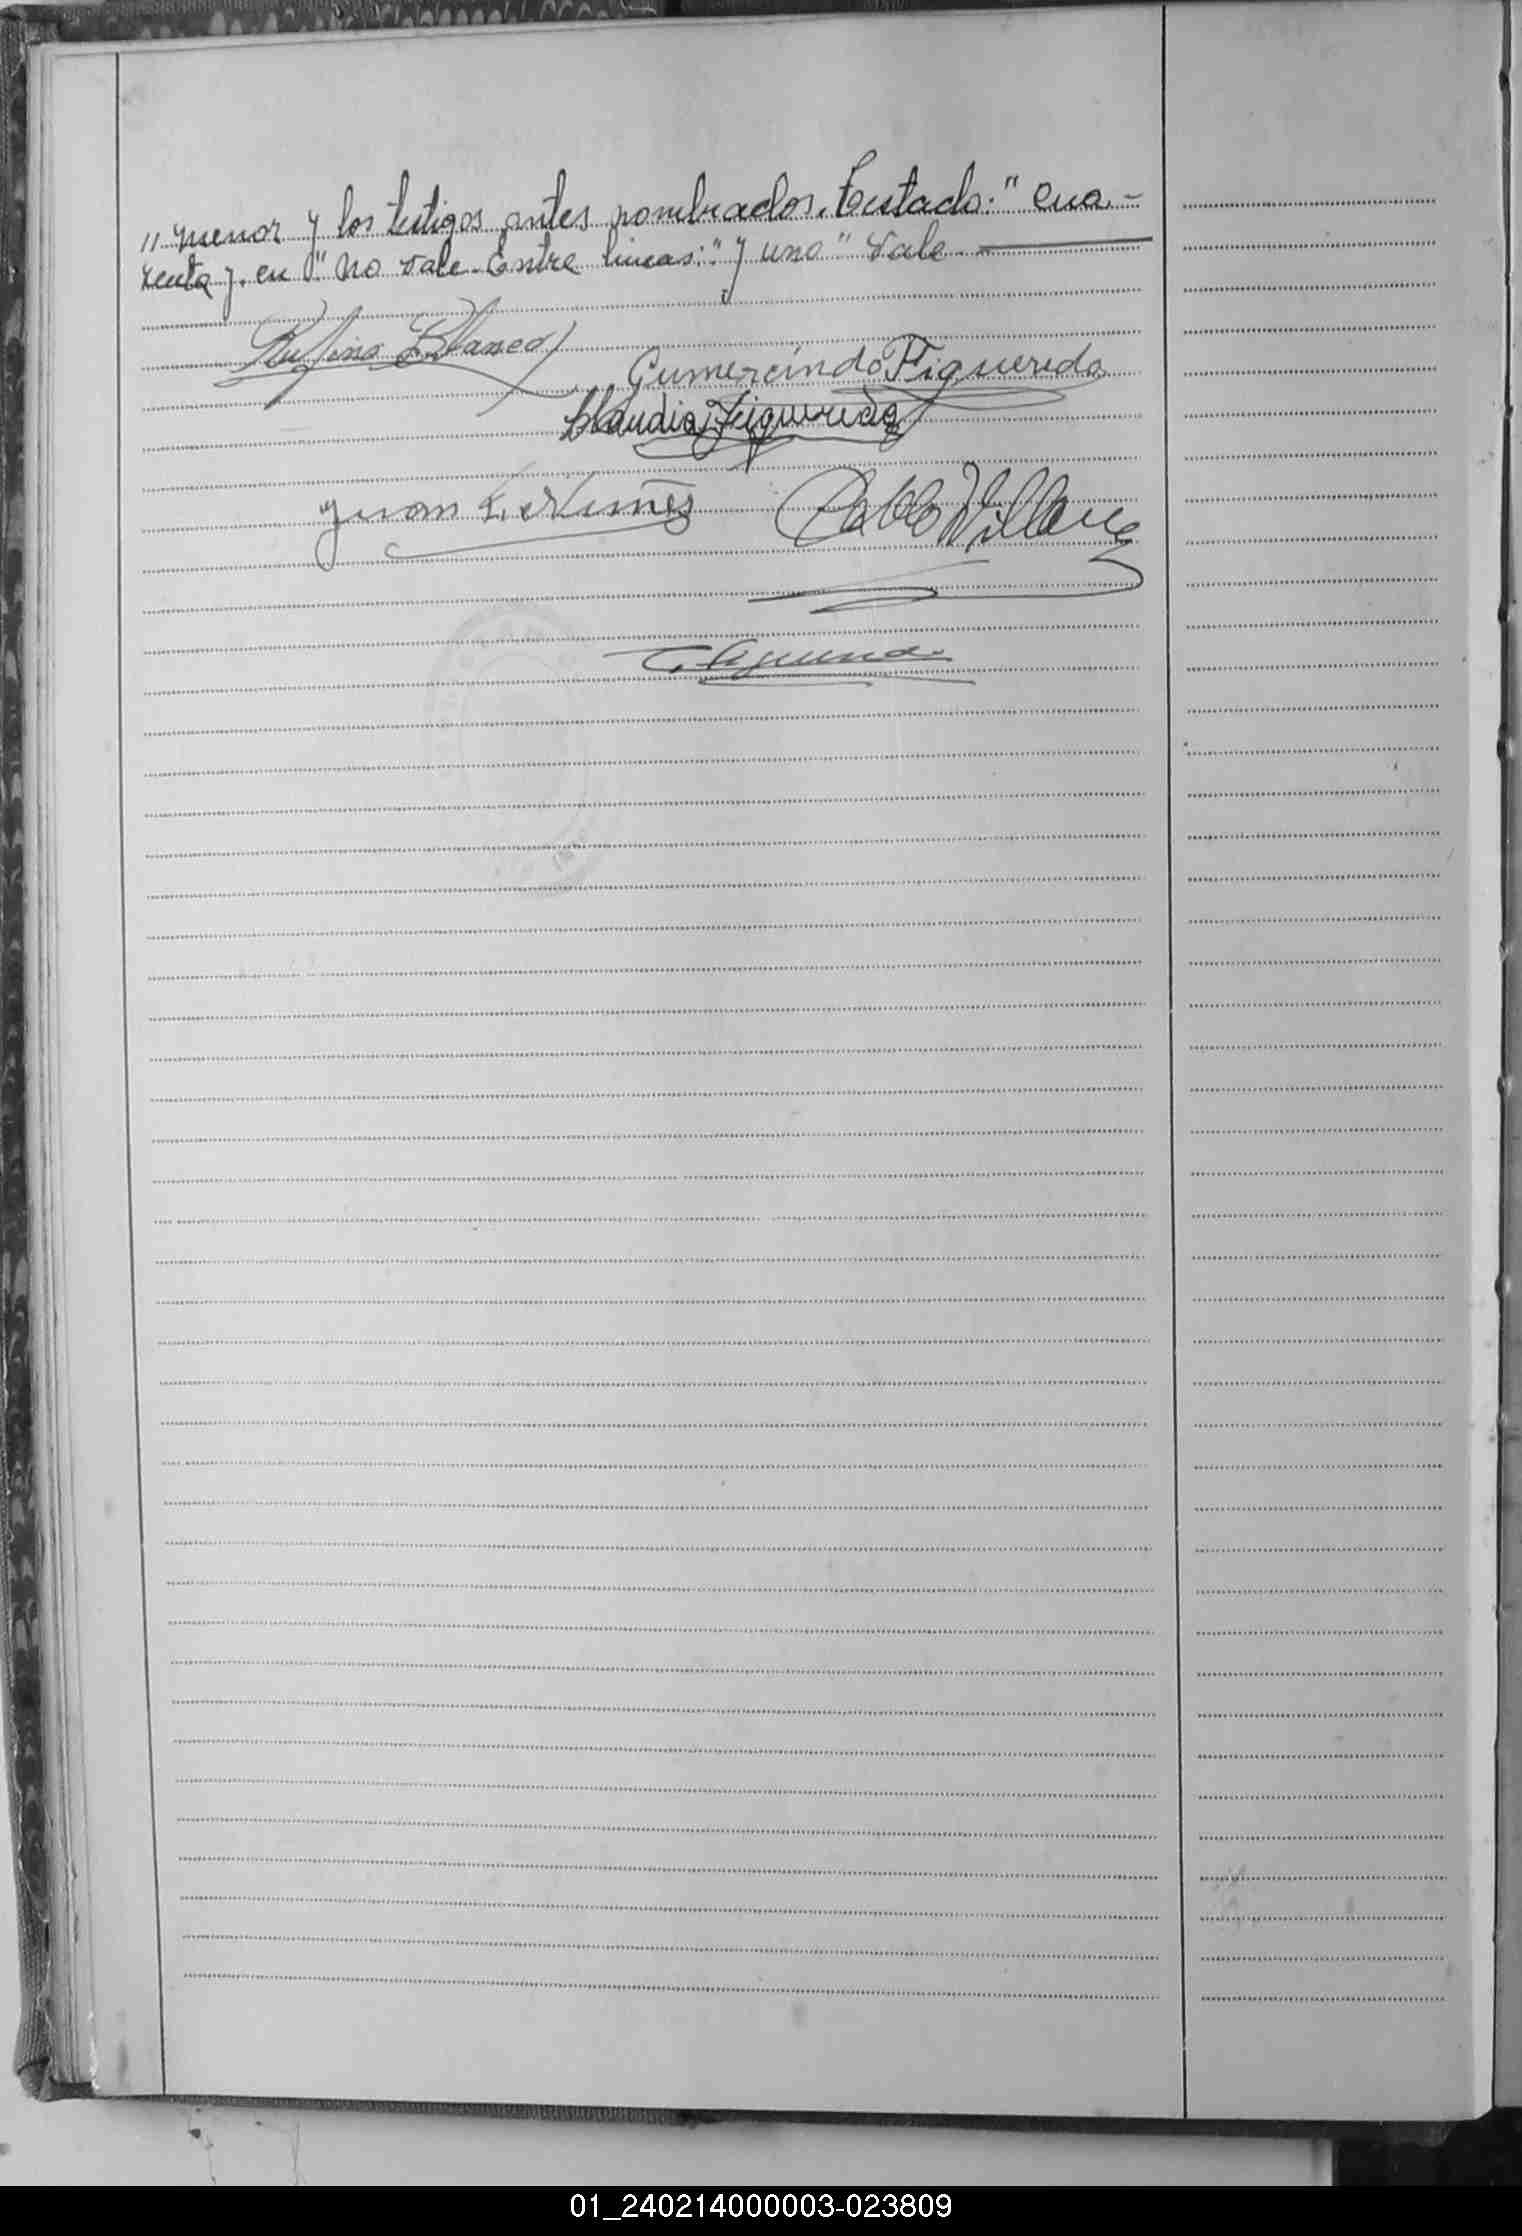 " menor y los testigos antes nombrados. Testado: " cua-
renta y. en " no vale. Entre lineas: " y uno " vale
Rufino Blanco
Gumercindo Figueredo
Claudia Figueredo
Juan
Pablo
01_240214000003-023809